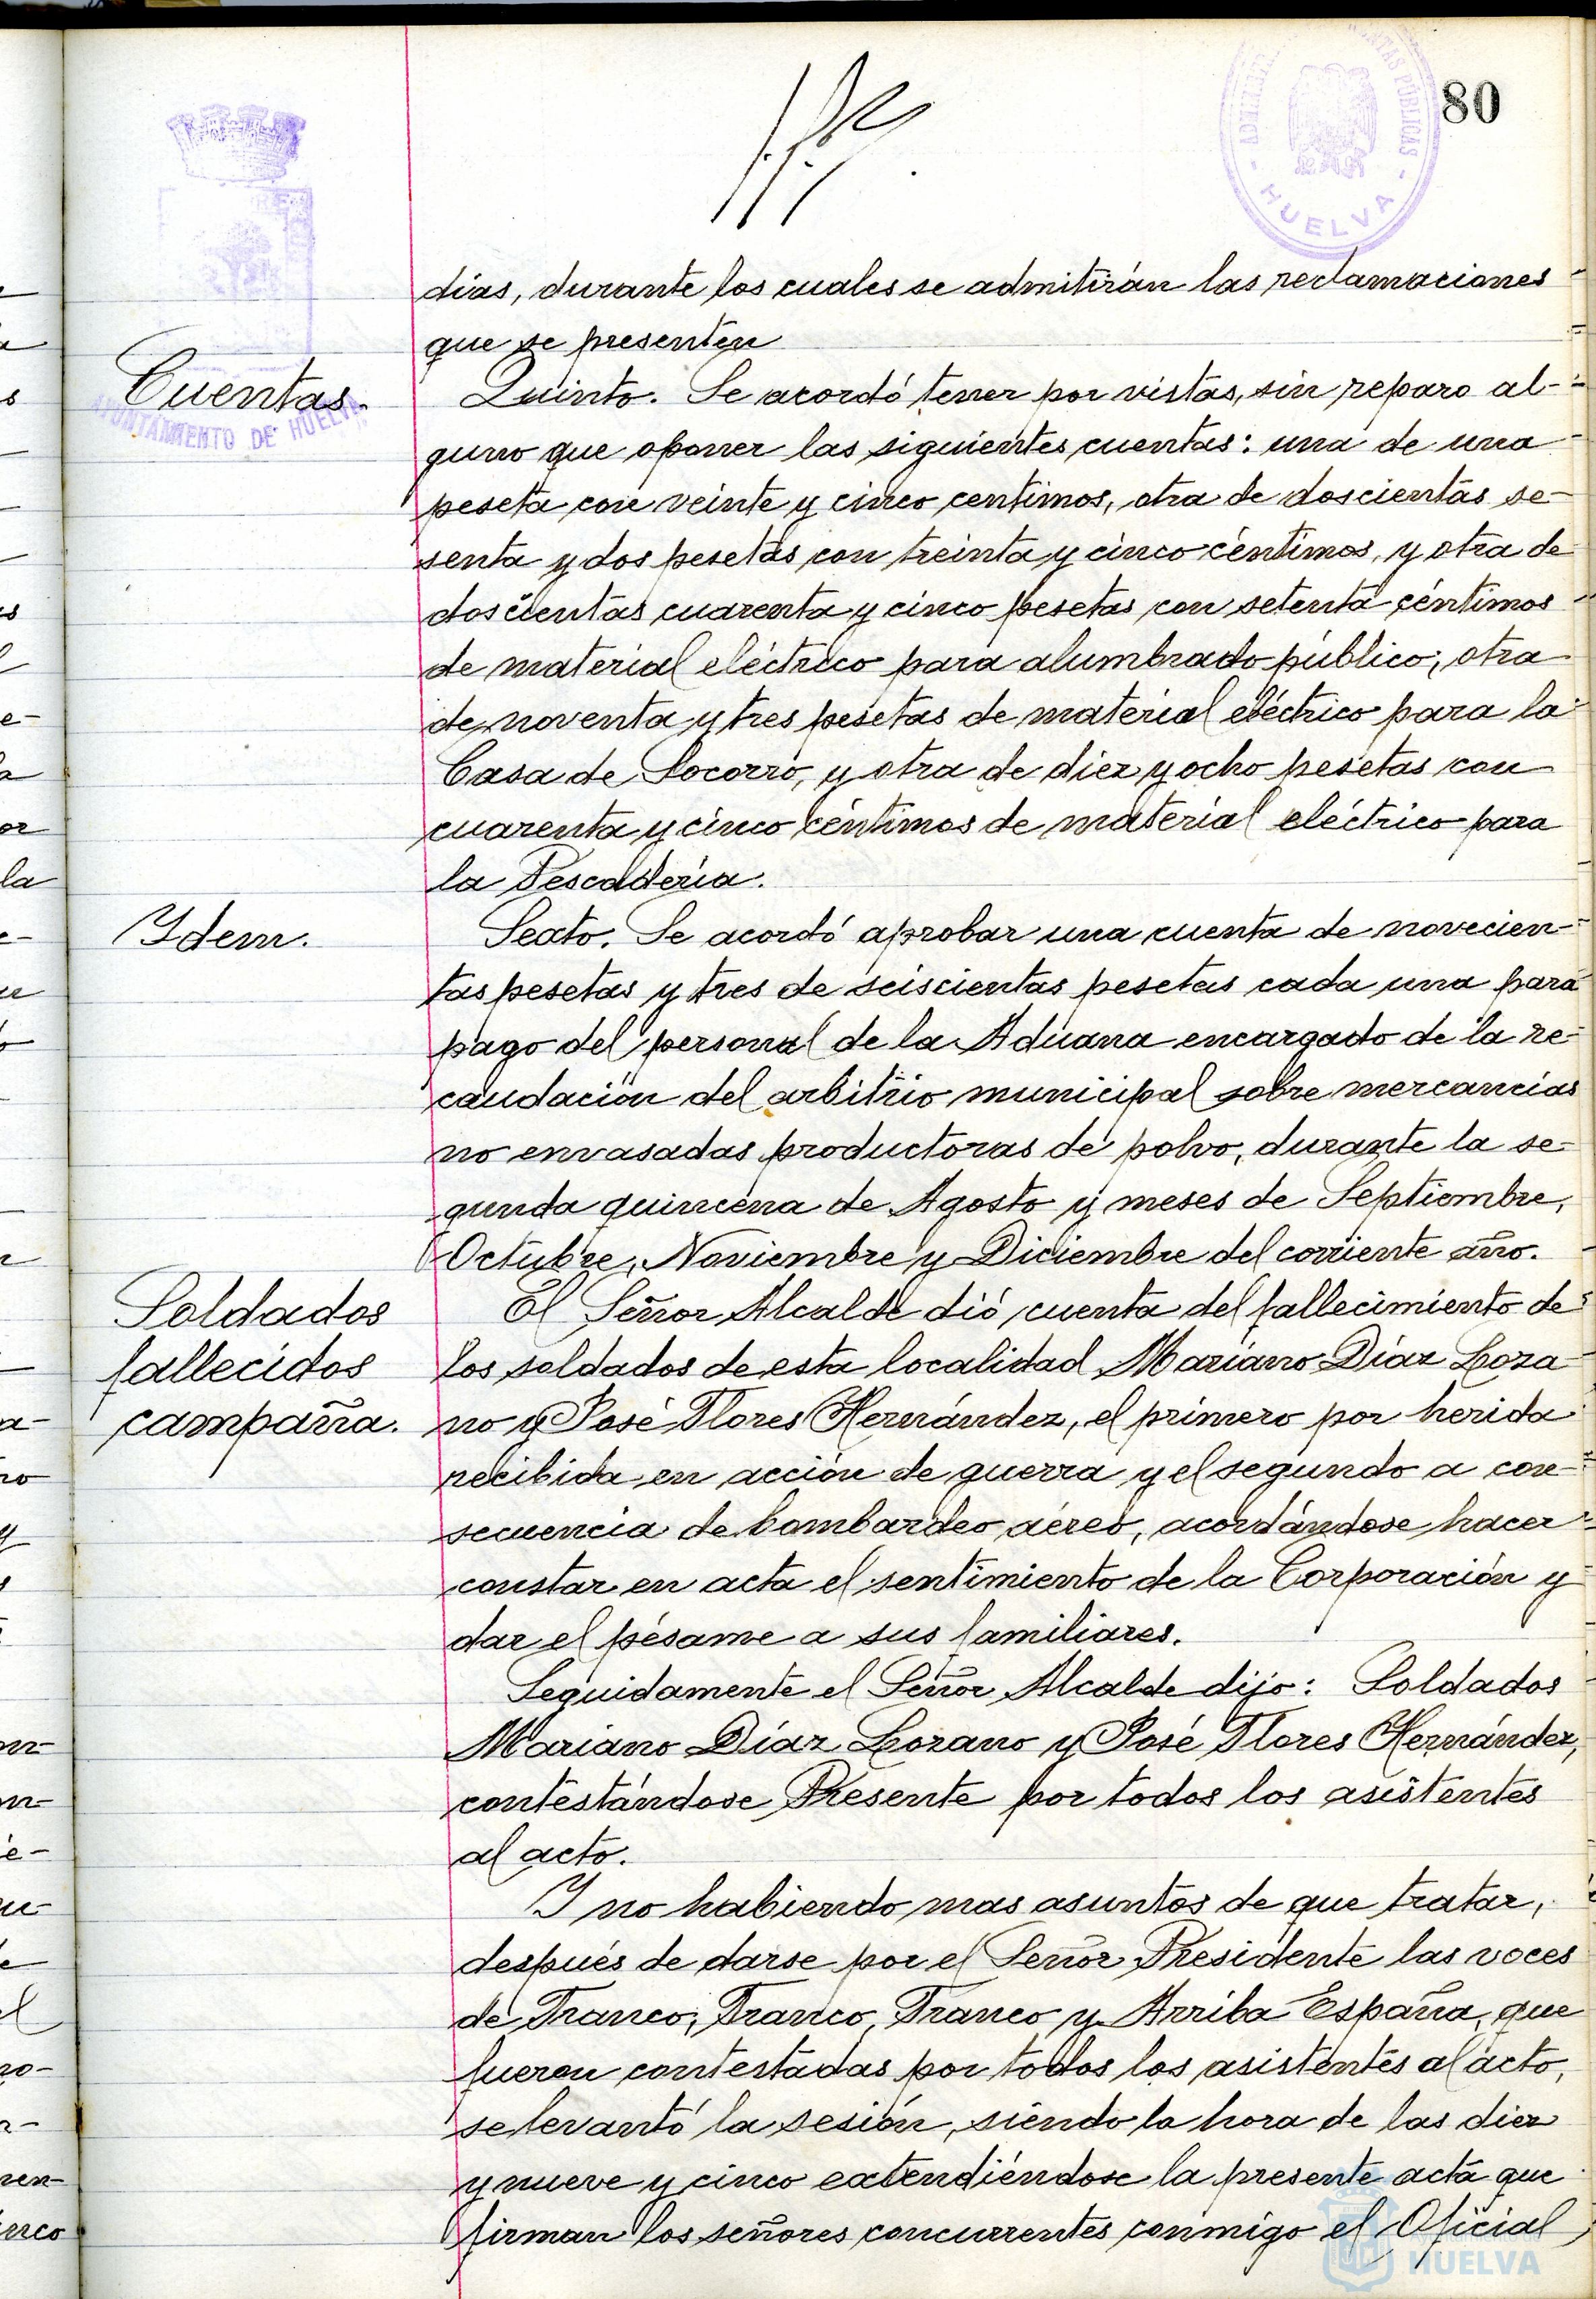 80
ADMINISTR
RENTAS PÚBLICAS
- HUELVA -
AYUNTAMIENTO DE HUELVA
días, durante los cuales se admitirán las reclamaciones
que se presenten
Cuentas.
Quinto. Se acordó tener por vistas, sin reparo al-
guno que oponer las siguientes cuentas: una de una
peseta con veinte y cinco centimos, otra de doscientas se-
senta y dos pesetas con treinta y cinco céntimos, y otra de
doscientas cuarenta y cinco pesetas con setenta céntimos
de material eléctrico para alumbrado público, otra
de noventa y tres pesetas de material eléctrico para la
Casa de Socorro, y otra de diez y ocho pesetas con
cuarenta y cinco céntimos de material eléctrico para
la Pescadería.
Ydem.
Sexto. Se acordó aprobar una cuenta de novecien-
tas pesetas y tres de seiscientas pesetas cada una para
pago del personal de la Aduana encargado de la re-
caudación del arbitrio municipal sobre mercancías
no envasadas productoras de polvo, durante la se-
gunda quincena de Agosto y meses de Septiembre,
Octubre, Noviembre y Diciembre del corriente año.
Soldados
fallecidos
campaña.
El Señor Alcalde dió cuenta del fallecimiento de
los soldados de esta localidad Mariano Díaz Loza
no y José Flores Hernández, el primero por herida
recibida en acción de guerra y el segundo a con-
secuencia de bombardeo aéreo, acordándose hacer
constar en acta el sentimiento de la Corporación y
dar el pésame a sus familiares.
Seguidamente el Señor Alcalde dijo: Soldados
Mariano Díaz Lozano y José Flores Hernández,
contestándose Presente por todos los asistentes
al acto.
Y no habiendo mas asuntos de que tratar,
después de darse por el Señor Presidente las voces
de Franco, Franco, Franco y Arriba España, que
fueron contestadas por todos los asistentes al acto,
se levantó la sesión, siendo la hora de las diez
y nueve y cinco extendiéndose la presente acta que
firman los señores concurrentes conmigo el Oficial
Ayuntamiento de
HUELVA